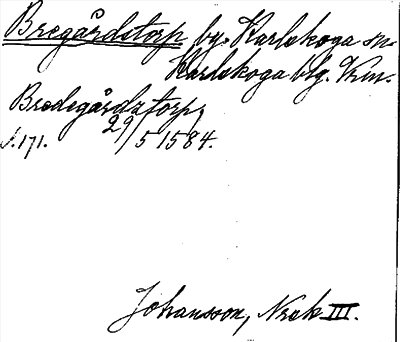 Bregårdstorp by. Karlskoga sn.
Karlskoga blg. Vrm.
Bredegårdztorp,
s. 171. 29/5 1584.
Johansson, Nrak III.